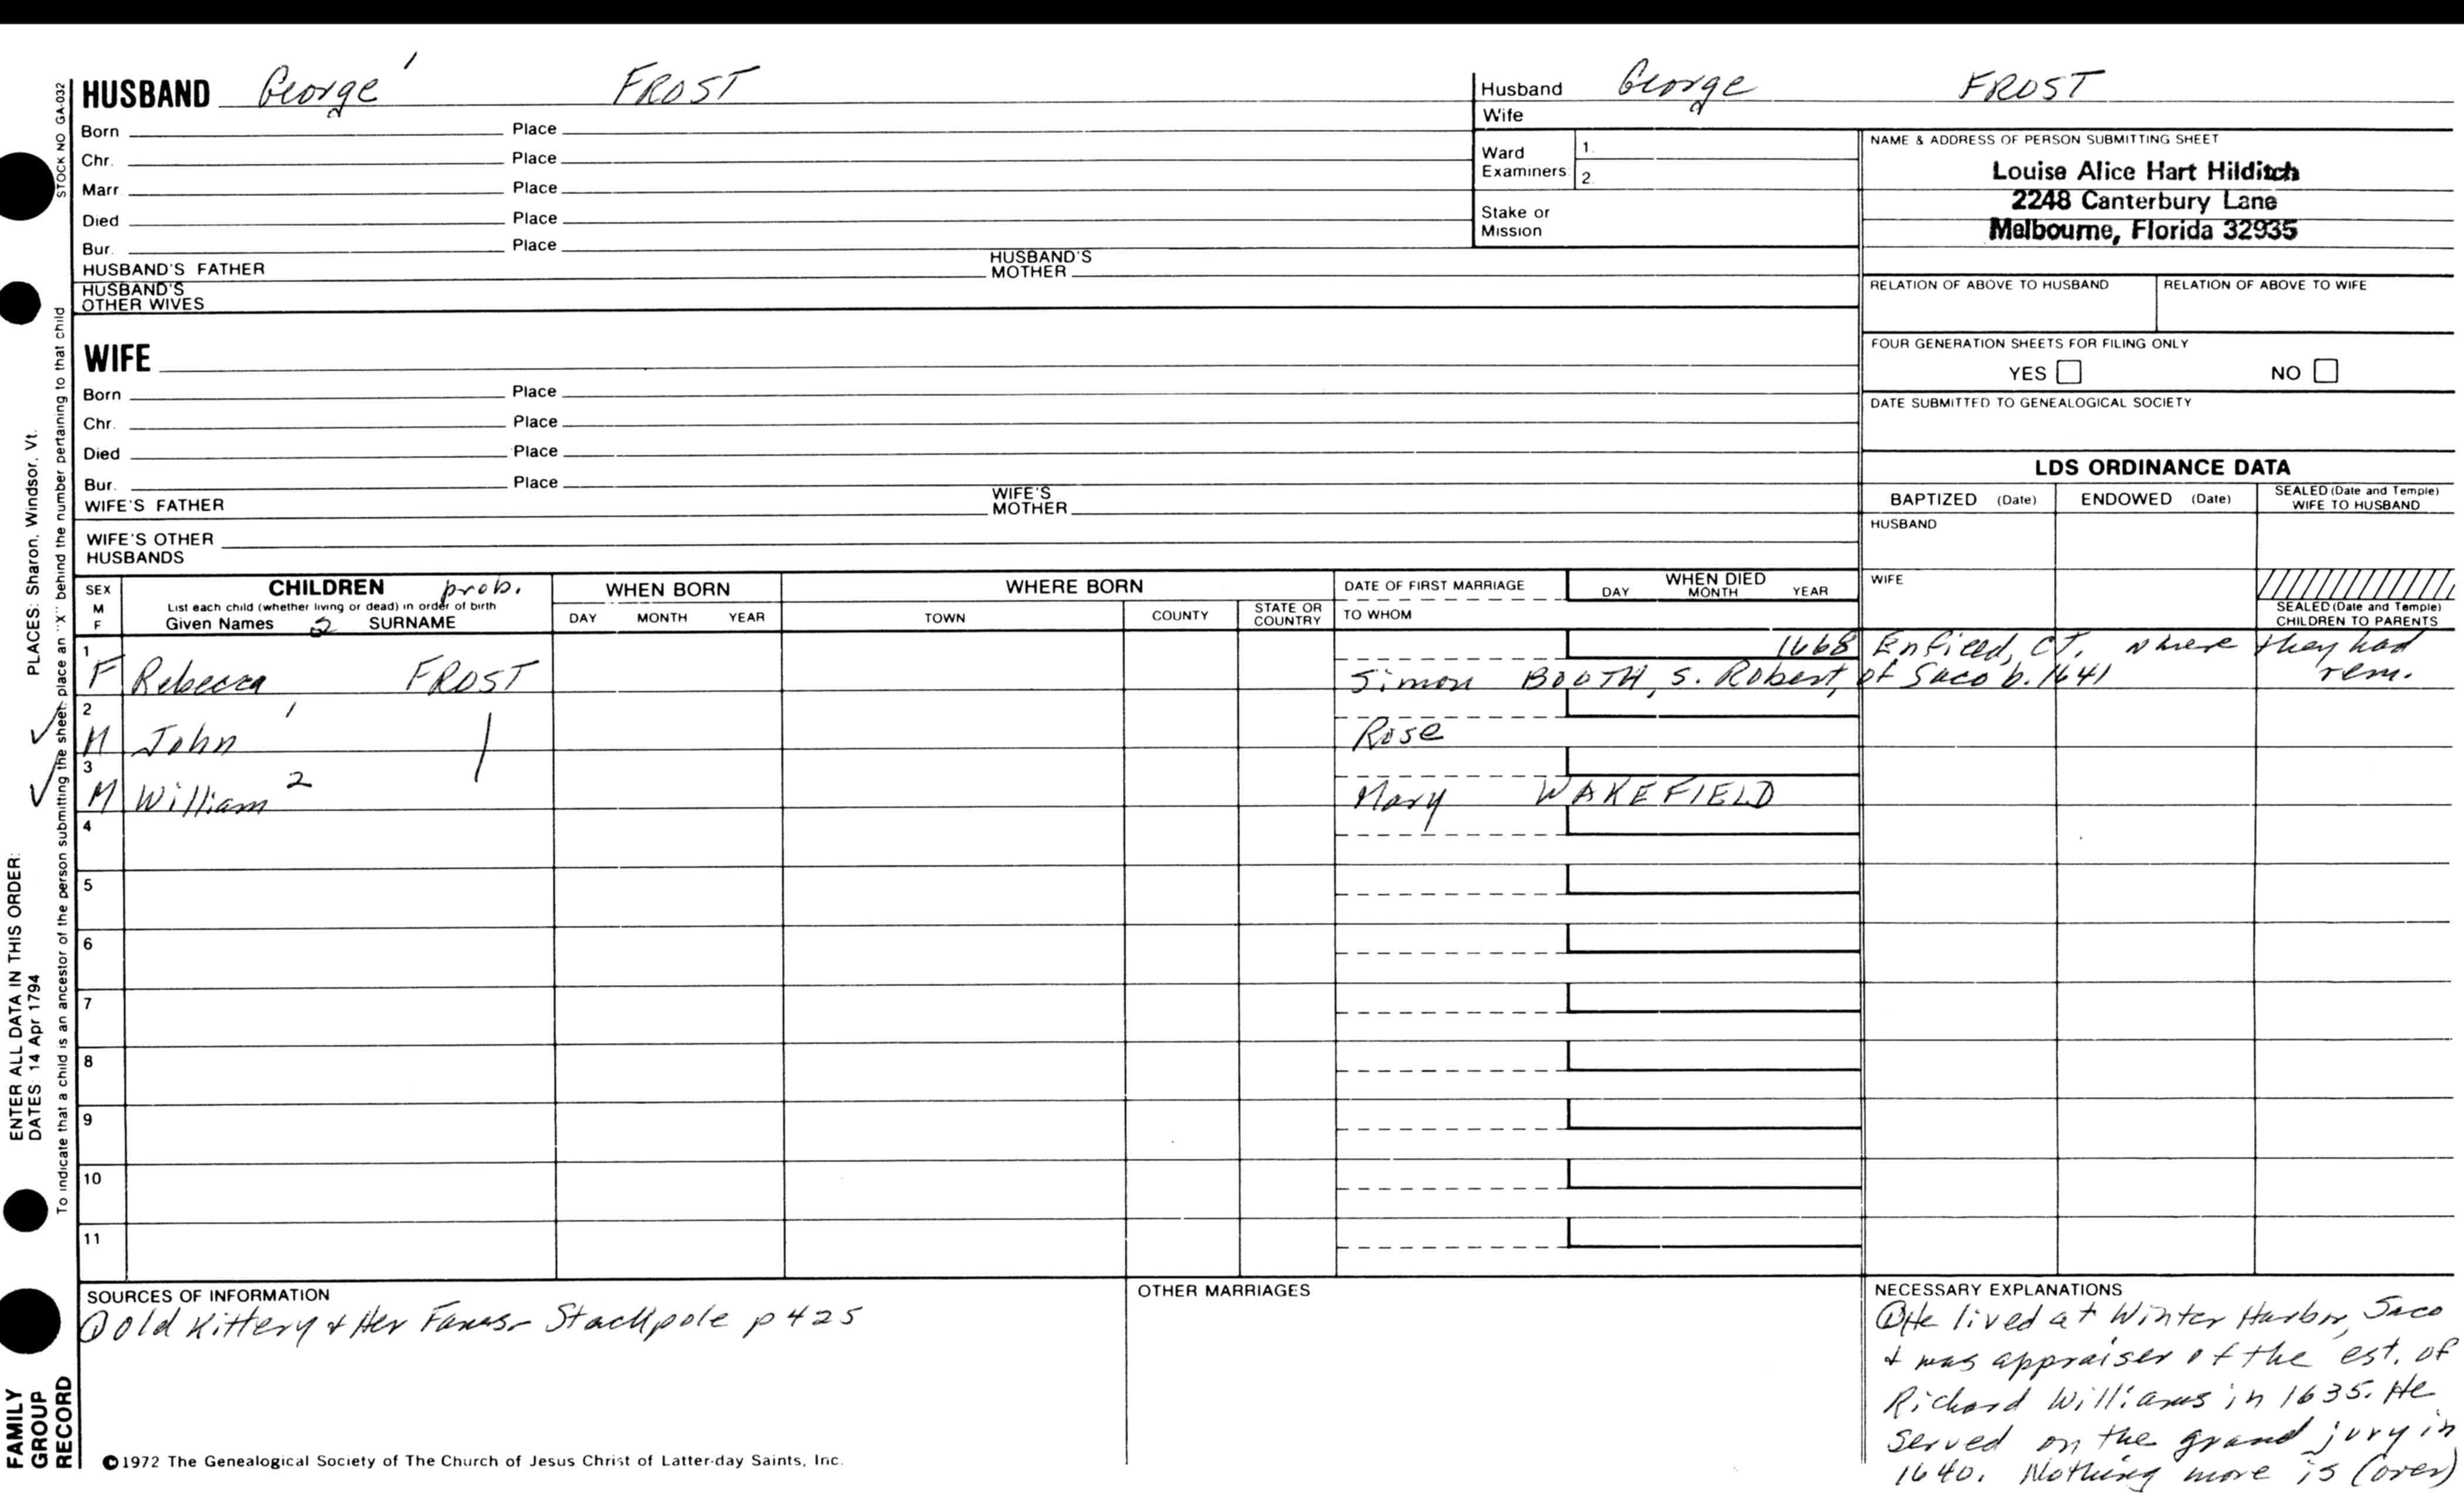 HUSBAND George 1 FROST
Born Place
Chr. Place
Marr. Place
Died Place
Bur. Place
HUSBAND'S FATHER HUSBAND'S MOTHER
HUSBAND'S OTHER WIVES
WIFE
Born Place
Chr. Place
Died Place
Bur. Place
WIFE'S FATHER WIFE'S MOTHER
WIFE'S OTHER HUSBANDS
Husband George FROST
Wife
Ward Examiners 1.
2.
Stake or Mission
NAME & ADDRESS OF PERSON SUBMITTING SHEET
Louise Alice Hart Hilditch
2248 Canterbury Lane
Melbourne, Florida 32935
RELATION OF ABOVE TO HUSBAND RELATION OF ABOVE TO WIFE
FOUR GENERATION SHEETS FOR FILING ONLY
YES NO
DATE SUBMITTED TO GENEALOGICAL SOCIETY
LDS ORDINANCE DATA
BAPTIZED (Date) ENDOWED (Date) SEALED (Date and Temple) WIFE TO HUSBAND
HUSBAND
WIFE
SEALED (Date and Temple) CHILDREN TO PARENTS
SEX M F
CHILDREN prob.
List each child (whether living or dead) in order of birth
Given Names 2 SURNAME
WHEN BORN
DAY MONTH YEAR
WHERE BORN
TOWN COUNTY STATE OR COUNTRY
DATE OF FIRST MARRIAGE
TO WHOM
WHEN DIED
DAY MONTH YEAR
1 1668 Enfield, CT. where they had
F Rebecca FROST Simon BOOTH, s. Robert, of Saco b. 1641 rem.
2
M John 1 Rose
3
M William 2 Mary WAKEFIELD
4
5
6
7
8
9
10
11
SOURCES OF INFORMATION
① Old Kittery & Her Fams - Stackpole p 425
OTHER MARRIAGES
NECESSARY EXPLANATIONS
① He lived at Winter Harbor, Saco
& was appraiser of the est. of
Richard Williams in 1635. He
served on the grand jury in
1640. Nothing more is (over)
©1972 The Genealogical Society of The Church of Jesus Christ of Latter-day Saints, Inc.
STOCK NO GA-032
To indicate that a child is an ancestor of the person submitting the sheet, place an "X" behind the number pertaining to that child
ENTER ALL DATA IN THIS ORDER:
DATES: 14 Apr 1794 PLACES: Sharon, Windsor, Vt.
FAMILY
GROUP
RECORD